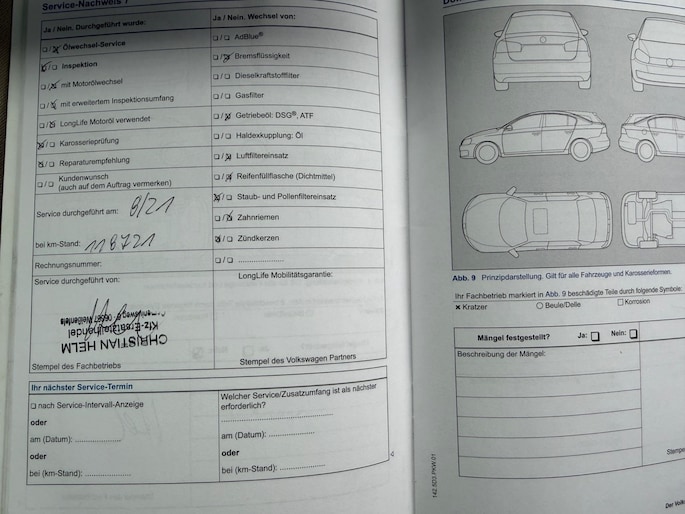 Service-Nachweis
Ja / Nein, Durchgeführt wurde:
☐/☒ Ölwechsel-Service
☒/☐ Inspektion
☐/☒ mit Motorölwechsel
☐/☒ mit erweitertem Inspektionsumfang
☐/☒ LongLife Motoröl verwendet
☒/☐ Karosserieprüfung
☒/☐ Reparaturempfehlung
☐/☐ Kundenwunsch
(auch auf dem Auftrag vermerken)
Service durchgeführt am: 9/21
bei km-Stand: 118721
Rechnungsnummer:
Service durchgeführt von:
CHRISTIAN HELM
Kfz-Ersatzteilhandel
06667 Weißenfels
Stempel des Fachbetriebs
Ja / Nein, Wechsel von:
☐/☐ AdBlue®
☐/☒ Bremsflüssigkeit
☐/☐ Dieselkraftstofffilter
☐/☐ Gasfilter
☐/☒ Getriebeöl: DSG®, ATF
☐/☐ Haldexkupplung: Öl
☐/☒ Luftfiltereinsatz
☐/☒ Reifenfüllflasche (Dichtmittel)
☒/☐ Staub- und Pollenfiltereinsatz
☐/☒ Zahnriemen
☒/☐ Zündkerzen
☐/☐ ....................
LongLife Mobilitätsgarantie:
Stempel des Volkswagen Partners
Ihr nächster Service-Termin
☐ nach Service-Intervall-Anzeige
oder
am (Datum): ....................
oder
bei (km-Stand): ....................
Welcher Service/Zusatzumfang ist als nächster
erforderlich?
am (Datum): ....................
oder
bei (km-Stand): ....................
142.5D3.PKW.01
Abb. 9 Prinzipdarstellung. Gilt für alle Fahrzeuge und Karosserieformen.
Ihr Fachbetrieb markiert in Abb. 9 beschädigte Teile durch folgende Symbole:
× Kratzer ○ Beule/Delle ☐ Korrosion
Mängel festgestellt? Ja: ☐ Nein: ☐
Beschreibung der Mängel:
Stempe
Der Volk